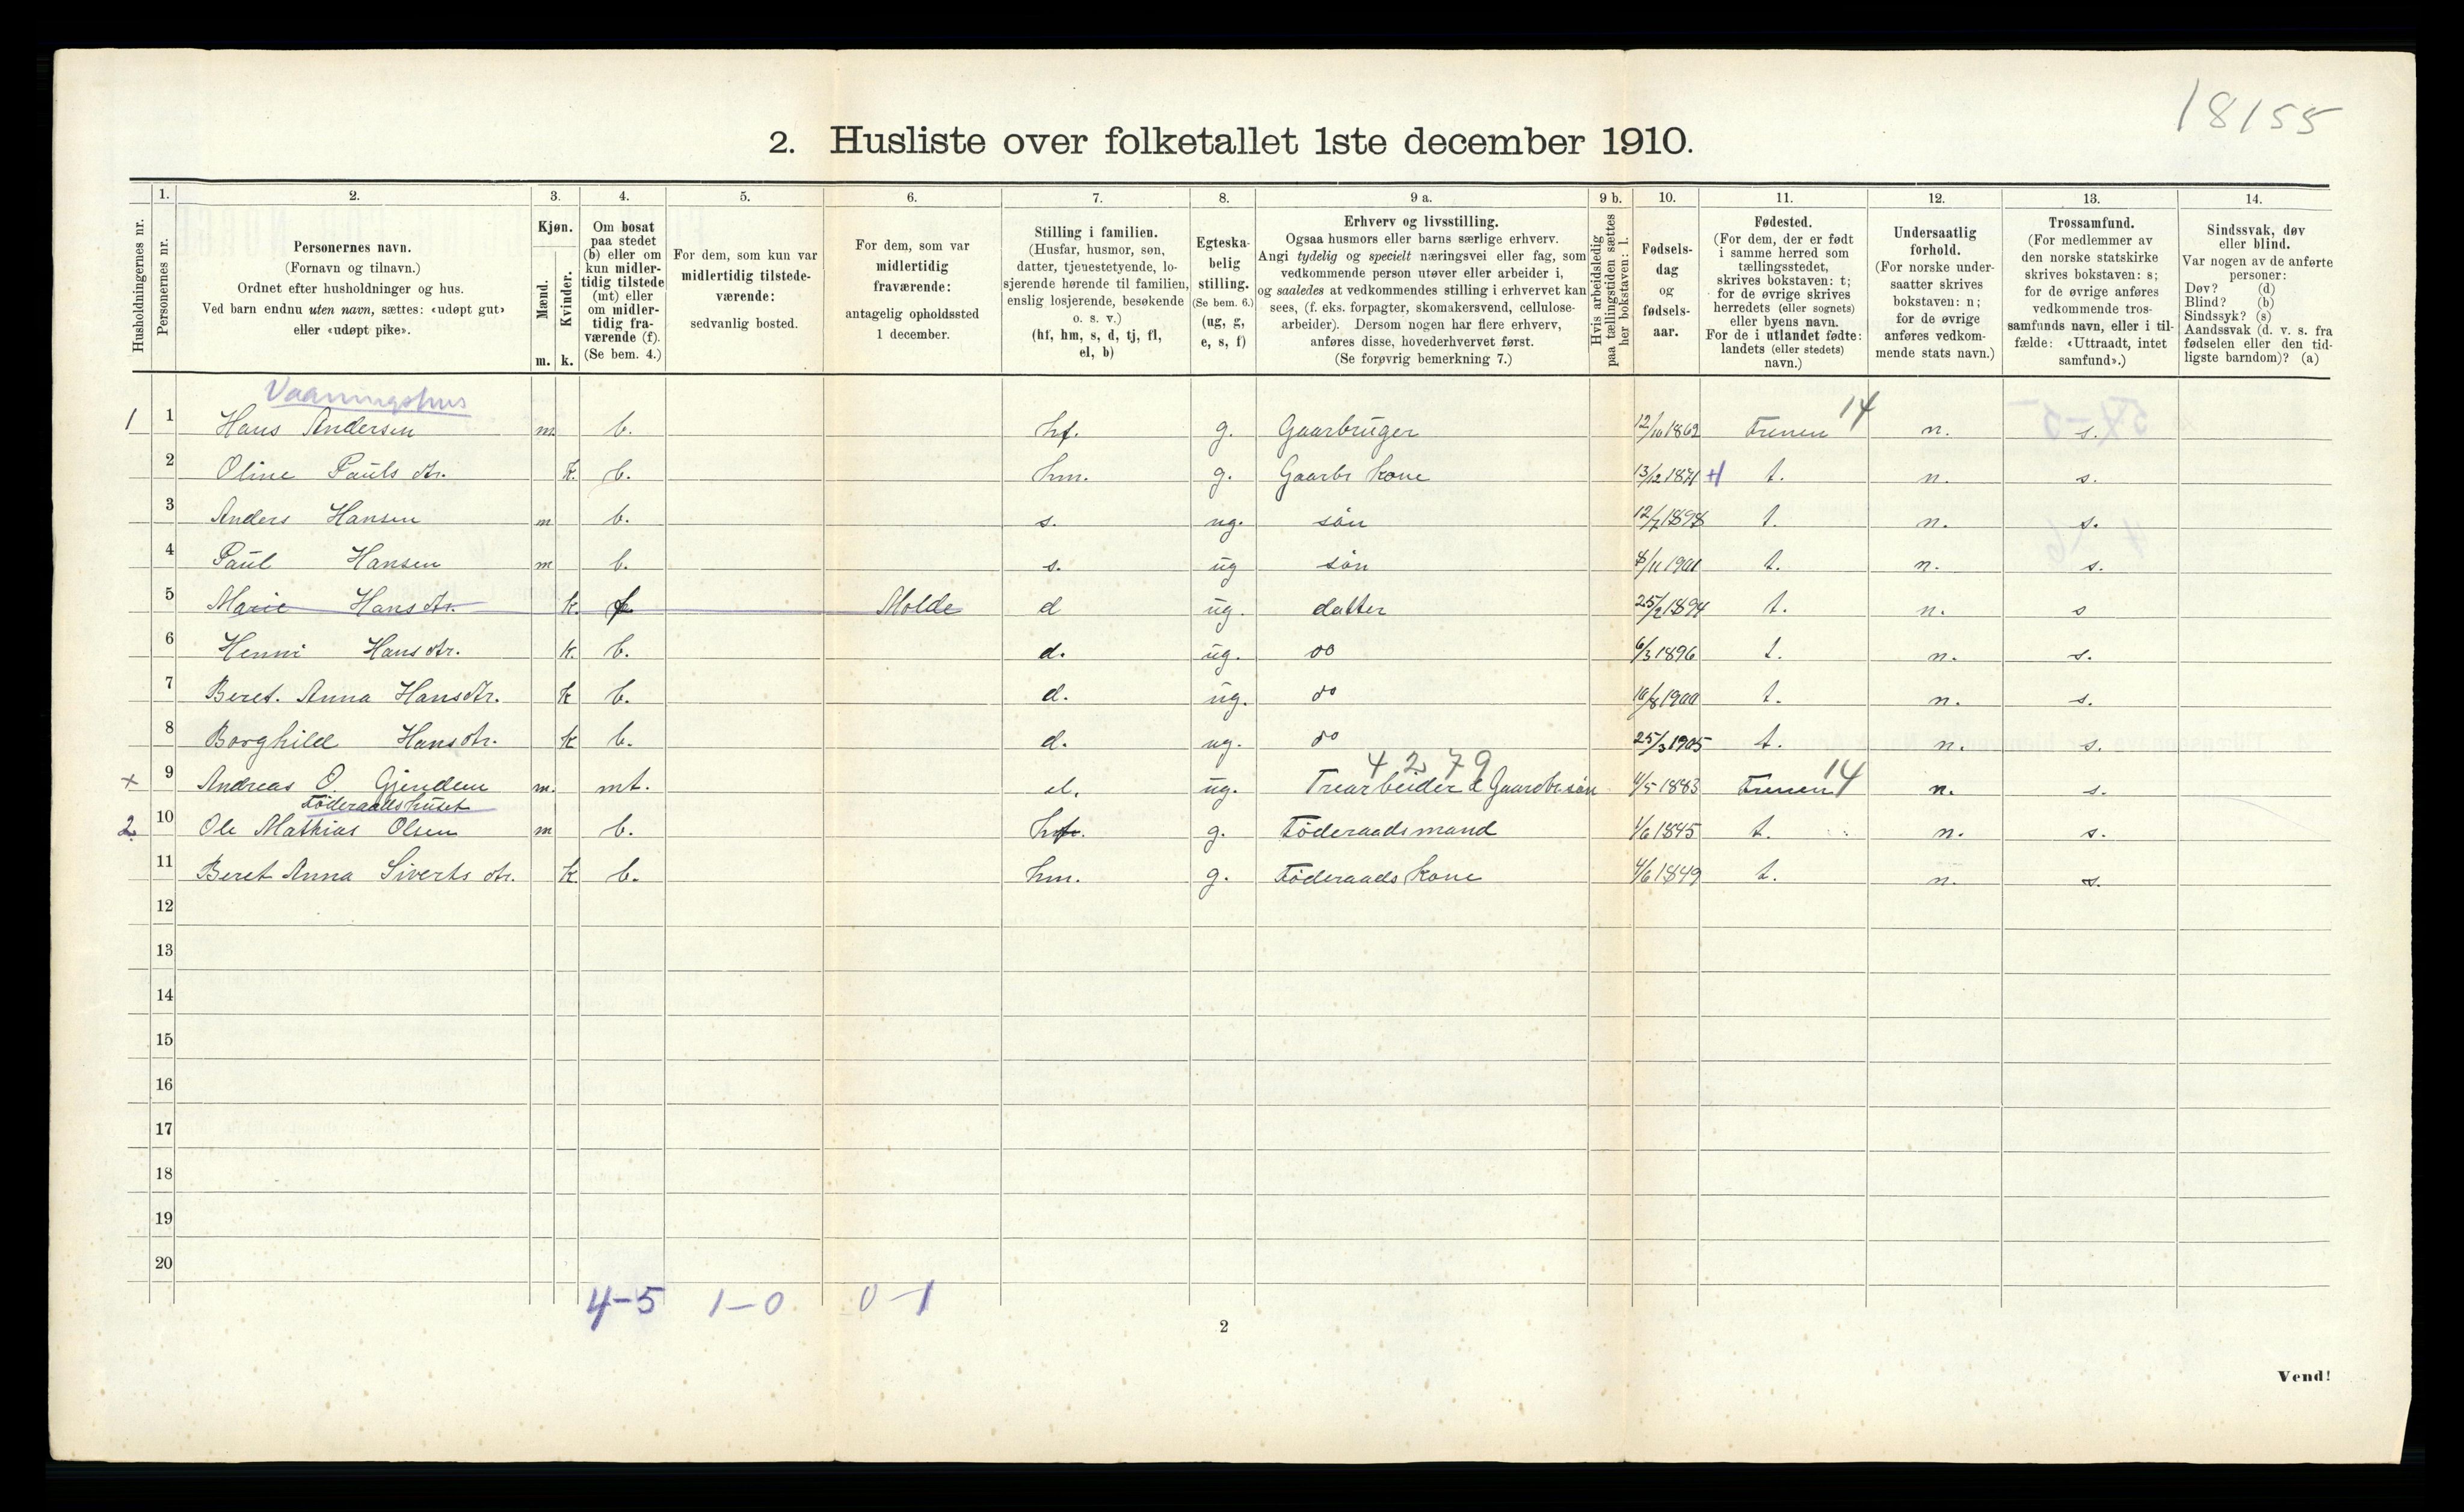 18155
2. Husliste over folketallet 1ste december 1910.
Husholdningernes nr.
1. Personernes nr.
2. Personernes navn. (Fornavn og tilnavn.) Ordnet efter husholdninger og hus. Ved barn endnu uten navn, sættes: «udøpt gut» eller «udøpt pike».
3. Kjøn. Mænd. m. Kvinder. k.
4. Om bosat paa stedet (b) eller om kun midlertidig tilstede (mt) eller om midlertidig fraværende (f). (Se bem. 4.)
5. For dem, som kun var midlertidig tilstedeværende: sedvanlig bosted.
6. For dem, som var midlertidig fraværende: antagelig opholdssted 1 december.
7. Stilling i familien. (Husfar, husmor, søn, datter, tjenestetyende, losjerende hørende til familien, enslig losjerende, besøkende o. s. v.) (hf, hm, s, d, tj, fl, el, b)
8. Egteskabelig stilling. (Se bem. 6.) (ug, g, e, s, f)
9 a. Erhverv og livsstilling. Ogsaa husmors eller barns særlige erhverv. Angi tydelig og specielt næringsvei eller fag, som vedkommende person utøver eller arbeider i, og saaledes at vedkommendes stilling i erhvervet kan sees, (f. eks. forpagter, skomakersvend, cellulose-arbeider). Dersom nogen har flere erhverv, anføres disse, hovederhvervet først. (Se forøvrig bemerkning 7.)
9 b. Hvis arbeidsledig paa tællingstiden sættes her bokstaven: l.
10. Fødselsdag og fødselsaar.
11. Fødested. (For dem, der er født i samme herred som tællingsstedet, skrives bokstaven: t; for de øvrige skrives herredets (eller sognets) eller byens navn. For de i utlandet fødte: landets (eller stedets) navn.)
12. Undersaatlig forhold. (For norske undersaatter skrives bokstaven: n; for de øvrige anføres vedkommende stats navn.)
13. Trossamfund. (For medlemmer av den norske statskirke skrives bokstaven: s; for de øvrige anføres vedkommende trossamfunds navn, eller i tilfælde: «Uttraadt, intet samfund».)
14. Sindssvak, døv eller blind. Var nogen av de anførte personer: Døv? (d) Blind? (b) Sindssyk? (s) Aandssvak (d. v. s. fra fødselen eller den tidligste barndom)? (a)
Vaaningshus
1 1 Hans Andersen m. b. hf. g. Gaarbruger 12/10 1862 Frenen 14 n. s.
2 Oline Pauls dtr. k. b. hm. g. Gaarbr kone 13/12 1871 t. n. s.
3 Anders Hansen m b. s. ug. søn 12/7 1898 t. n. s.
4 Paul Hansen m b. s. ug søn 8/11 1901 t. n. s.
5 Marie Hans dtr. k. f Molde d ug. datter 25/2 1894 t. n. s
6 Henni Hans dtr. k. b. d. ug. do 6/3 1896 t. n. s.
7 Beret. Anna Hansdtr. k b. d. ug. do 10/8 1900 t. n. s.
8 Borghild Hansdtr. k b. d. ug. do 25/3 1905 t. n. s.
4279
x 9 Andreas O. Gjendem m. mt. el. ug. Træarbeider & Gaardbr.søn 4/5 1883 Frenen 14 n. s.
Føderaadshuset
2 10 Ole Mathias Olsen m b. hf. g. Føderaadsmand 1/6 1845 t. n. s.
11 Beret Anna Siverts dtr. k b. hm. g. Føderaads kone 4/6 1849 t. n. s.
12
13
14
15
16
17
18
19
20
4-5 1-0 0-1
2
Vend!